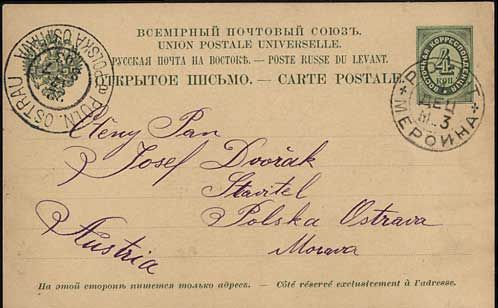 ВСЕМІРНЫЙ ПОЧТОВЫЙ СОЮЗЪ.
UNION POSTALE UNIVERSELLE.
РУССКАЯ ПОЧТА НА ВОСТОКѢ. — POSTE RUSSE DU LEVANT.
ОТКРЫТОЕ ПИСЬМО. — CARTE POSTALE.
ВОСТОЧНАЯ КОРРЕСПОНДЕНЦІЯ
4
КОП
POLN. OSTRAU
POLSKÁ OSTRAVA
ДЕЦ
3
МЕРСИНА
Ctěny Pan
Josef Dvořak
Stavitel
Polska Ostrava
Morava
Austria
На этой сторонѣ пишется только адресъ. — Côté réservé exclusivement à l'adresse.